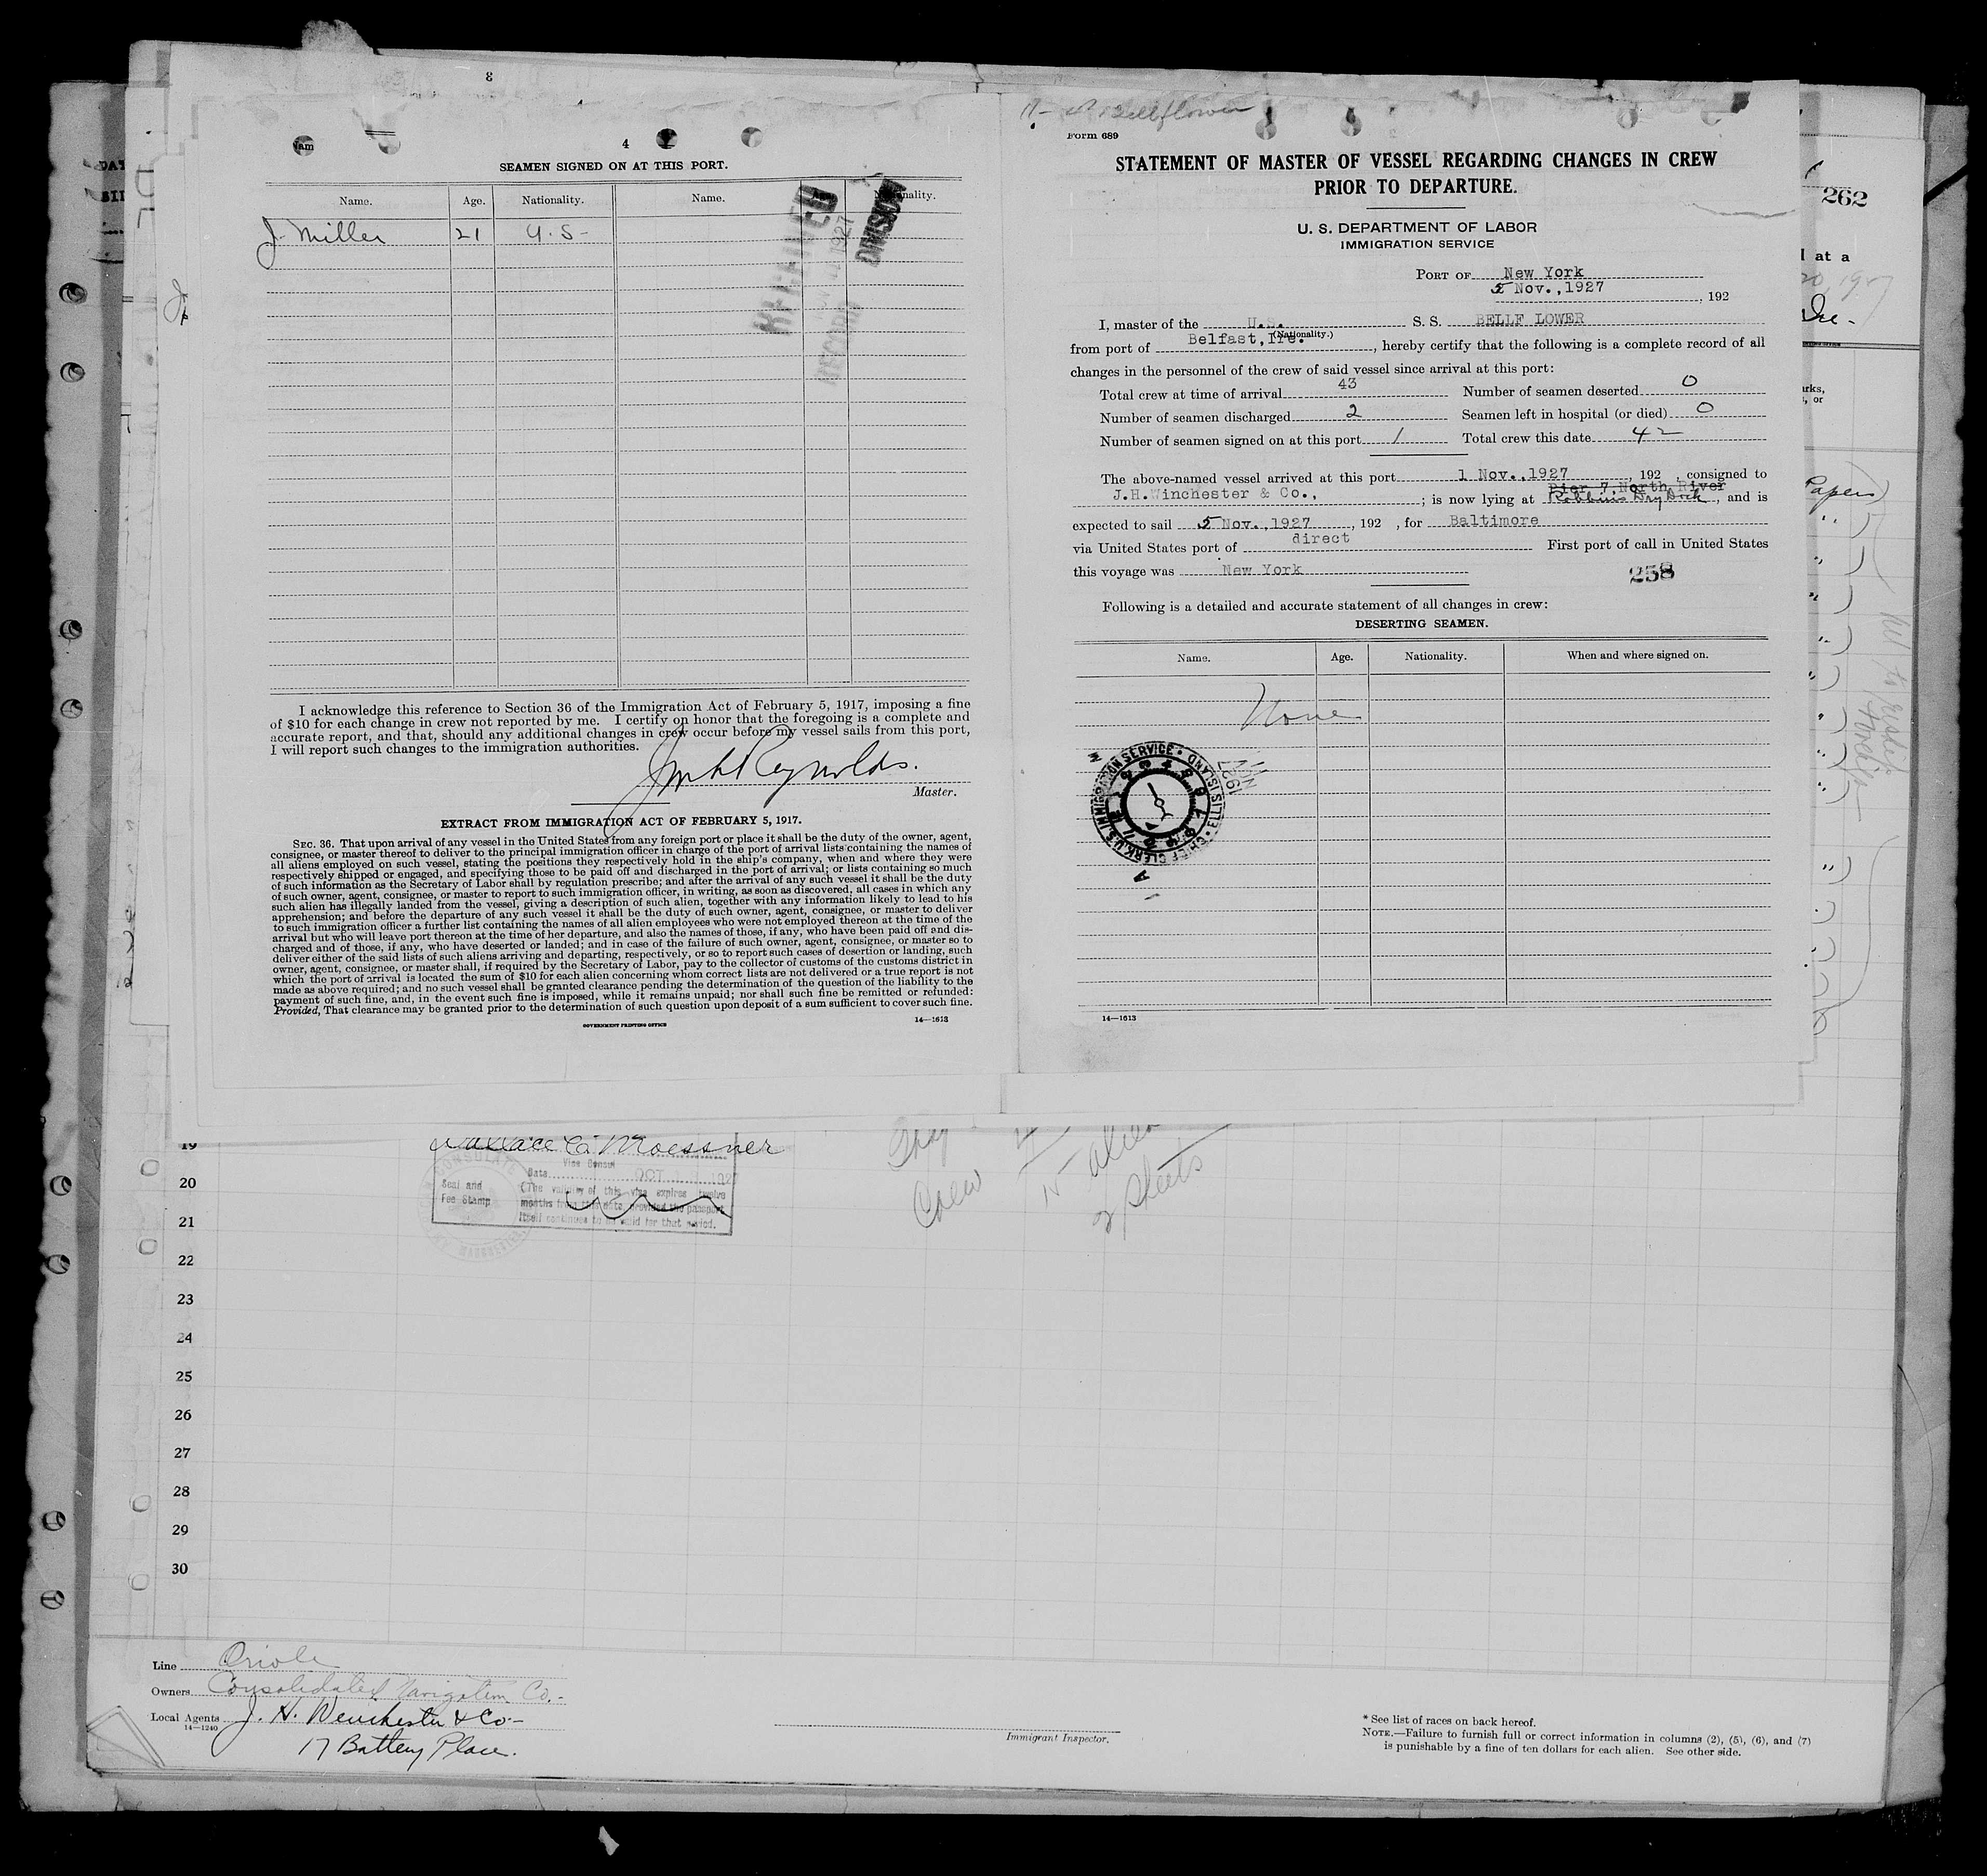 8
4
SEAMEN SIGNED ON AT THIS PORT.
Name. Age. Nationality. Name. Nationality.
J. Miller 21 U.S-
RECEIVED
1927
RECORD
DIVISION
I acknowledge this reference to Section 36 of the Immigration Act of February 5, 1917, imposing a fine
of $10 for each change in crew not reported by me. I certify on honor that the foregoing is a complete and
accurate report, and that, should any additional changes in crew occur before my vessel sails from this port,
I will report such changes to the immigration authorities.
Reynolds.
Master.
EXTRACT FROM IMMIGRATION ACT OF FEBRUARY 5, 1917.
SEC. 36. That upon arrival of any vessel in the United States from any foreign port or place it shall be the duty of the owner, agent,
consignee, or master thereof to deliver to the principal immigration officer in charge of the port of arrival lists containing the names of
all aliens employed on such vessel, stating the positions they respectively hold in the ship's company, when and where they were
respectively shipped or engaged, and specifying those to be paid off and discharged in the port of arrival; or lists containing so much
of such information as the Secretary of Labor shall by regulation prescribe; and after the arrival of any such vessel it shall be the duty
of such owner, agent, consignee, or master to report to such immigration officer, in writing, as soon as discovered, all cases in which any
such alien has illegally landed from the vessel, giving a description of such alien, together with any information likely to lead to his
apprehension; and before the departure of any such vessel it shall be the duty of such owner, agent, consignee, or master to deliver
to such immigration officer a further list containing the names of all alien employees who were not employed thereon at the time of the
arrival but who will leave port thereon at the time of her departure, and also the names of those, if any, who have been paid off and dis-
charged and of those, if any, who have deserted or landed; and in case of the failure of such owner, agent, consignee, or master so to
deliver either of the said lists of such aliens arriving and departing, respectively, or so to report such cases of desertion or landing, such
owner, agent, consignee, or master shall, if required by the Secretary of Labor, pay to the collector of customs of the customs district in
which the port of arrival is located the sum of $10 for each alien concerning whom correct lists are not delivered or a true report is not
made as above required; and no such vessel shall be granted clearance pending the determination of the question of the liability to the
payment of such fine, and, in the event such fine is imposed, while it remains unpaid; nor shall such fine be remitted or refunded:
Provided, That clearance may be granted prior to the determination of such question upon deposit of a sum sufficient to cover such fine.
GOVERNMENT PRINTING OFFICE 14—1613
Bellflower
Form 689
STATEMENT OF MASTER OF VESSEL REGARDING CHANGES IN CREW
PRIOR TO DEPARTURE.
U. S. DEPARTMENT OF LABOR
IMMIGRATION SERVICE
PORT OF New York
5 Nov.,1927, 192
I, master of the U.S. S. S. BELLF LOWER
(Nationality.)
from port of Belfast,Ire., hereby certify that the following is a complete record of all
changes in the personnel of the crew of said vessel since arrival at this port:
Total crew at time of arrival 43 Number of seamen deserted 0
Number of seamen discharged 2 Seamen left in hospital (or died) 0
Number of seamen signed on at this port 1 Total crew this date 42
The above-named vessel arrived at this port 1 Nov.,1927, 192 , consigned to
Pier 7 North River
J.H.Winchester & Co., ; is now lying at Robbins Dry Dock, and is
expected to sail 5 Nov.,1927, 192 , for Baltimore
via United States port of direct First port of call in United States
this voyage was New York
258
Following is a detailed and accurate statement of all changes in crew:
DESERTING SEAMEN.
Name. Age. Nationality. When and where signed on.
None
U.S. IMMIGRATION SERVICE • ELLIS ISLAND • CHIEF CLERK
NOV
1927
14—1613
262
at a
Papers
19
20
21
22
23
24
25
26
27
28
29
30
Wallace E. Moessner
Vice Consul
Date OCT
Seal and
Fee Stamp
(The validity of this visa expires twelve
months from this date, provided the passport
itself continues to be valid for that period.
Crew
2 Sheets
Line Oriole
Owners Consolidated Navigation Co.-
Local Agents J. H. Winchester & Co-
14—1240
17 Battery Place.
Immigrant Inspector.
* See list of races on back hereof.
NOTE.—Failure to furnish full or correct information in columns (2), (5), (6), and (7)
is punishable by a fine of ten dollars for each alien. See other side.